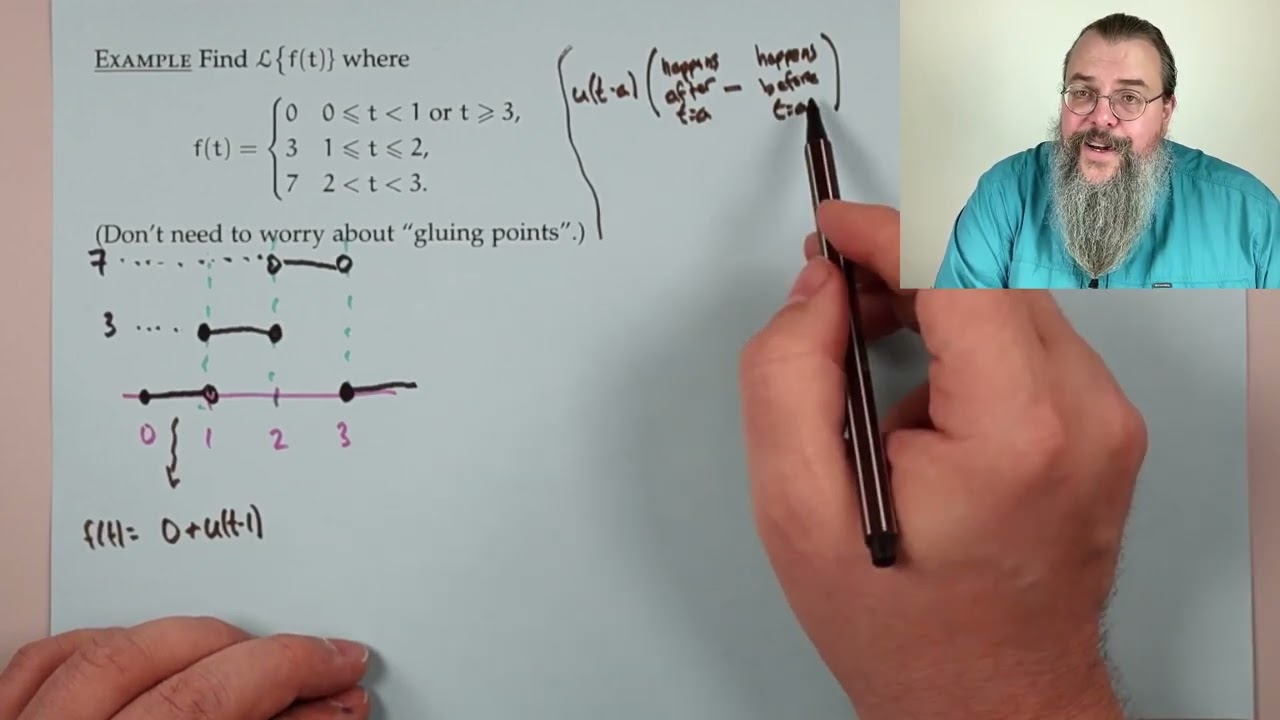 EXAMPLE Find ℒ{f(t)} where
f(t) = { 0 0 ⩽ t < 1 or t ⩾ 3,
3 1 ⩽ t ⩽ 2,
7 2 < t < 3.
(Don't need to worry about “gluing points”.)
u(t-a) (happens after t=a - happens before t=a)
7
3
0 1 2 3
f(t)= 0+u(t-1)